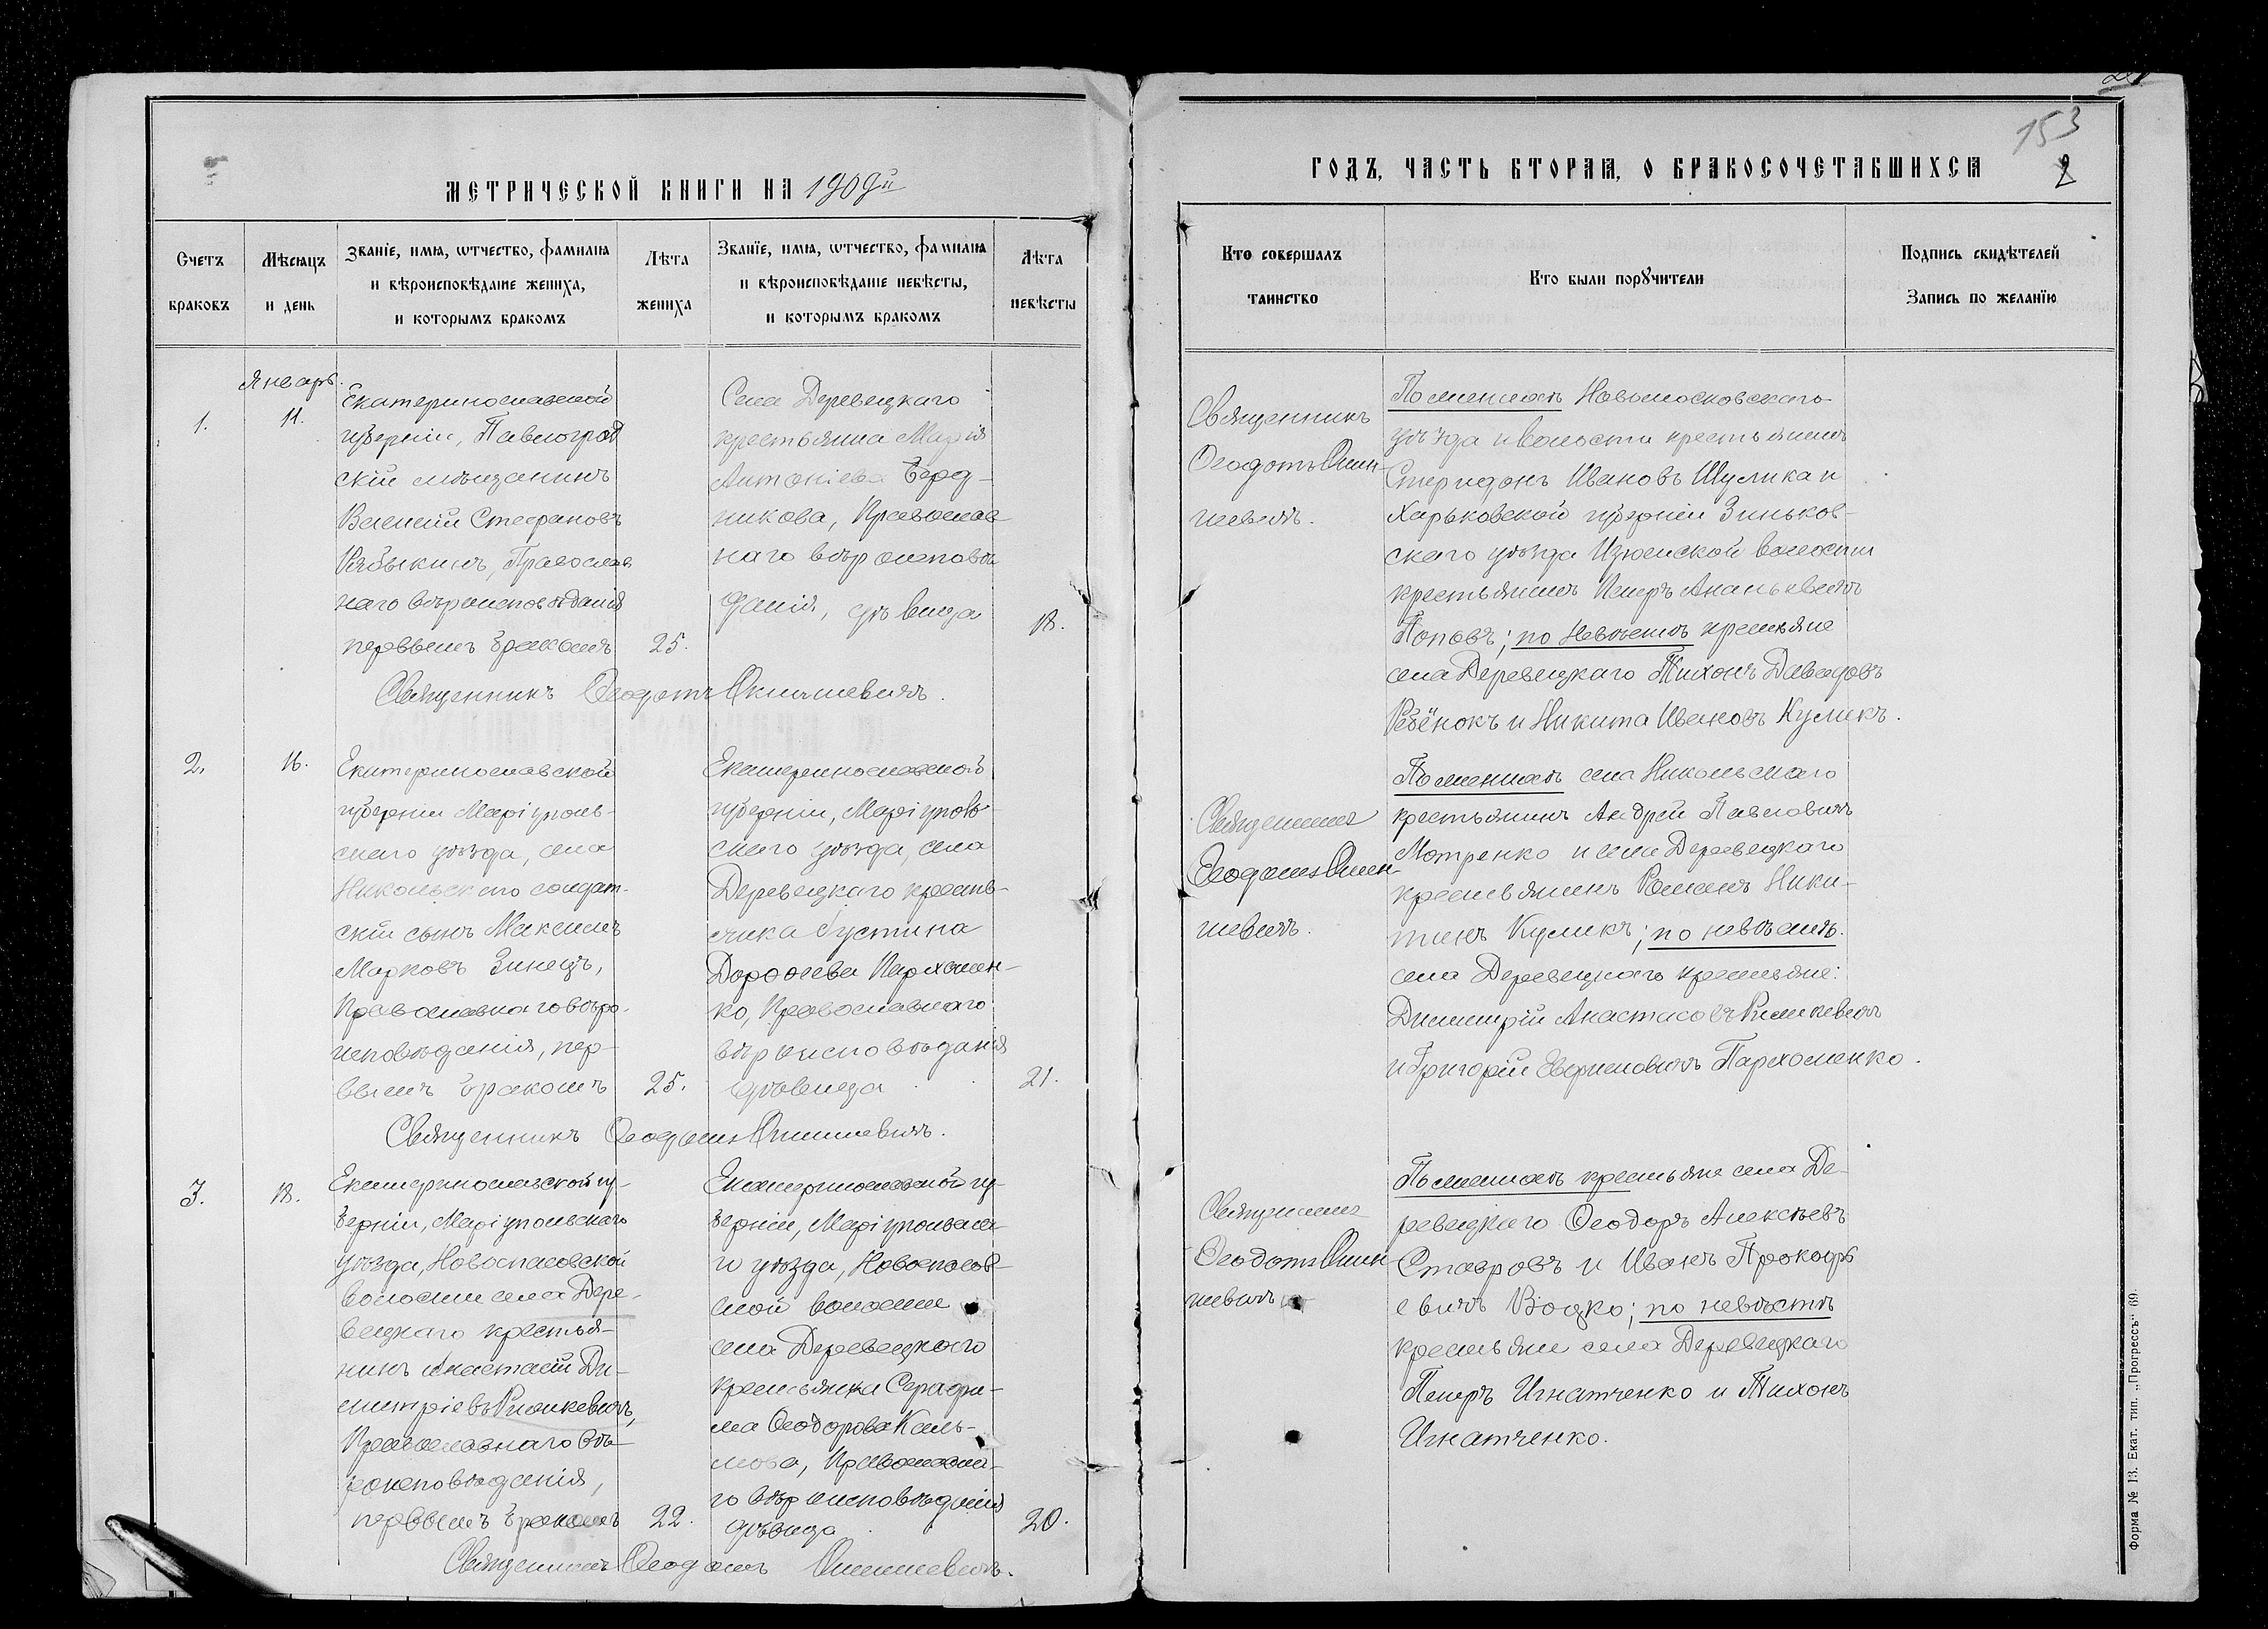 153
МЕТРИЧЕСКОЙ КНИГИ НА 1909й
ГОДЪ, ЧАСТЬ ВТОРАЯ, О БРАКОСОЧЕТАВШИХСЯ
2
Счетъ
браковъ
Мѣсяцъ
и день
Званіе, имя, ѡтчество, фамилія
и вѣроисповѣданіе жениха,
и которымъ бракомъ
Лѣта
жениха
Званіе, имя, ѡтчество, фамилія
и вѣроисповѣданіе невѣсты,
и которымъ бракомъ
Лѣта
невѣсты
Кто совершалъ
таинство
Кто были порꙋчители
Подпись свидѣтелей
Запись по желанію
Январь.
1.
11.
Екатеринославской
губерніи, Павлоград
скій мѣщанинъ
Василій Стефановъ
Рябыкинъ, Православ
наго вѣроисповѣданія
первымъ бракомъ
25.
Села Деревецкаго
крестьянка Марія
Антоніева Берд-
никова, Православ
наго вѣроисповѣ
данія, дѣвица
18.
Священникъ Ѳеодотъ
Священникъ
Ѳеодотъ
шевичъ.
По женихѣ Новомосковскаго
уѣзда и волости крестьянинъ
Спиридонъ Ивановъ Шулика и
Харьковской губерніи Зиньков-
скаго уѣзда Изюмской волости
крестьянинъ Петръ Ананьевичъ
Поповъ; по невѣстѣ крестьяне
села Деревецкаго Тихонъ Давидовъ
Ребёнокъ и Никита Ивановъ Куликъ.
2.
16.
Екатеринославской
губерніи Маріуполь-
скаго уѣзда, села
Никольскаго солдат-
скій сынъ Максимъ
Марковъ Зинецъ,
Православнаго вѣро-
исповѣданія, пер-
вымъ бракомъ
25.
Екатеринославской
губерніи, Маріуполь-
скаго уѣзда, села
Деревецкаго кресть-
янка Іустина
Дороѳеева Пархомен-
ко, Православнаго
вѣроисповѣданія
дѣвица
21.
Священникъ Ѳеодотъ
Священникъ
Ѳеодотъ
шевичъ.
По женихѣ села Никольскаго
крестьянинъ Андрей Павловичъ
Мотренко и села Деревецкаго
крестьянинъ Романъ Ники-
тинъ Куликъ; по невѣстѣ.
села Деревецкаго крестьяне:
Димитрій Анастасовъ
и Григорій Пархоменко.
3.
18.
Екатеринославской гу-
берніи, Маріупольскаго
уѣзда, Новоспасовской
волости села Дере-
вецкаго крестья-
нинъ Анастасій Ди-
митріевъ
Православнаго вѣ-
роисповѣданія,
первымъ бракомъ
22.
Екатеринославской гу-
берніи, Маріупольска-
го уѣзда, Новоспасов-
ской волости
села Деревецкаго
крестьянка Серафи-
ма Ѳеодорова Каль-
мова, Православна-
го вѣроисповѣданія
дѣвица
20.
Священникъ Ѳеодотъ
Священникъ
Ѳеодотъ
шевичъ
По женихѣ крестьяне села Де-
ревецкаго Ѳеодоръ Алексѣевъ
Ставровъ и Иванъ Прокофь
евичъ Воцко; по невѣстѣ
крестьяне села Деревецкаго
Петръ Игнатченко и Тихонъ
Игнатченко.
Форма № 13. Екат. тип. „Прогрессъ“ 69.